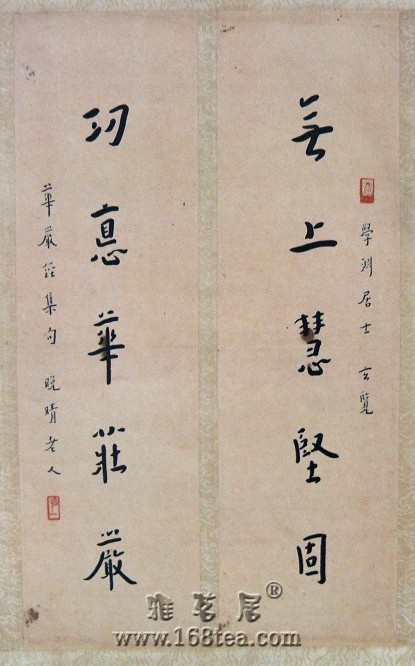 學渊居士 玄覽
無上慧堅固
功悳華莊嚴
華嚴經集句 晚晴老人
雅茗居®
www.168tea.com